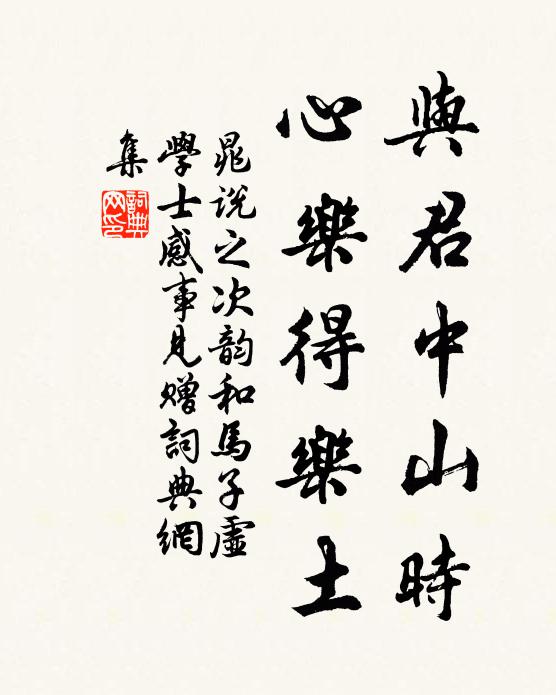 與君中山時
心樂得樂土
晁說之次韵和馬子虛
學士感事見贈詞典網
集
詞典
网印